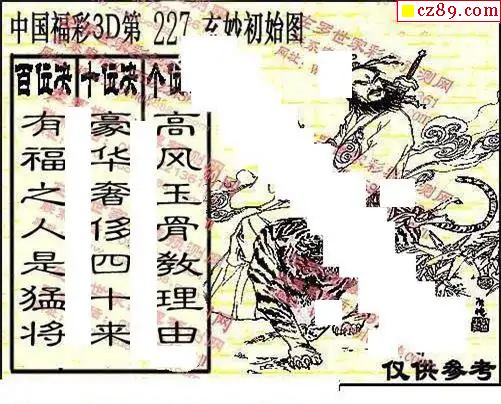 cz89.com
中国福彩3D第 227 玄妙初始图
百位决 十位决 个位
有福之人是猛将
豪华奢侈四十来
高风玉骨教理由
仅供参考